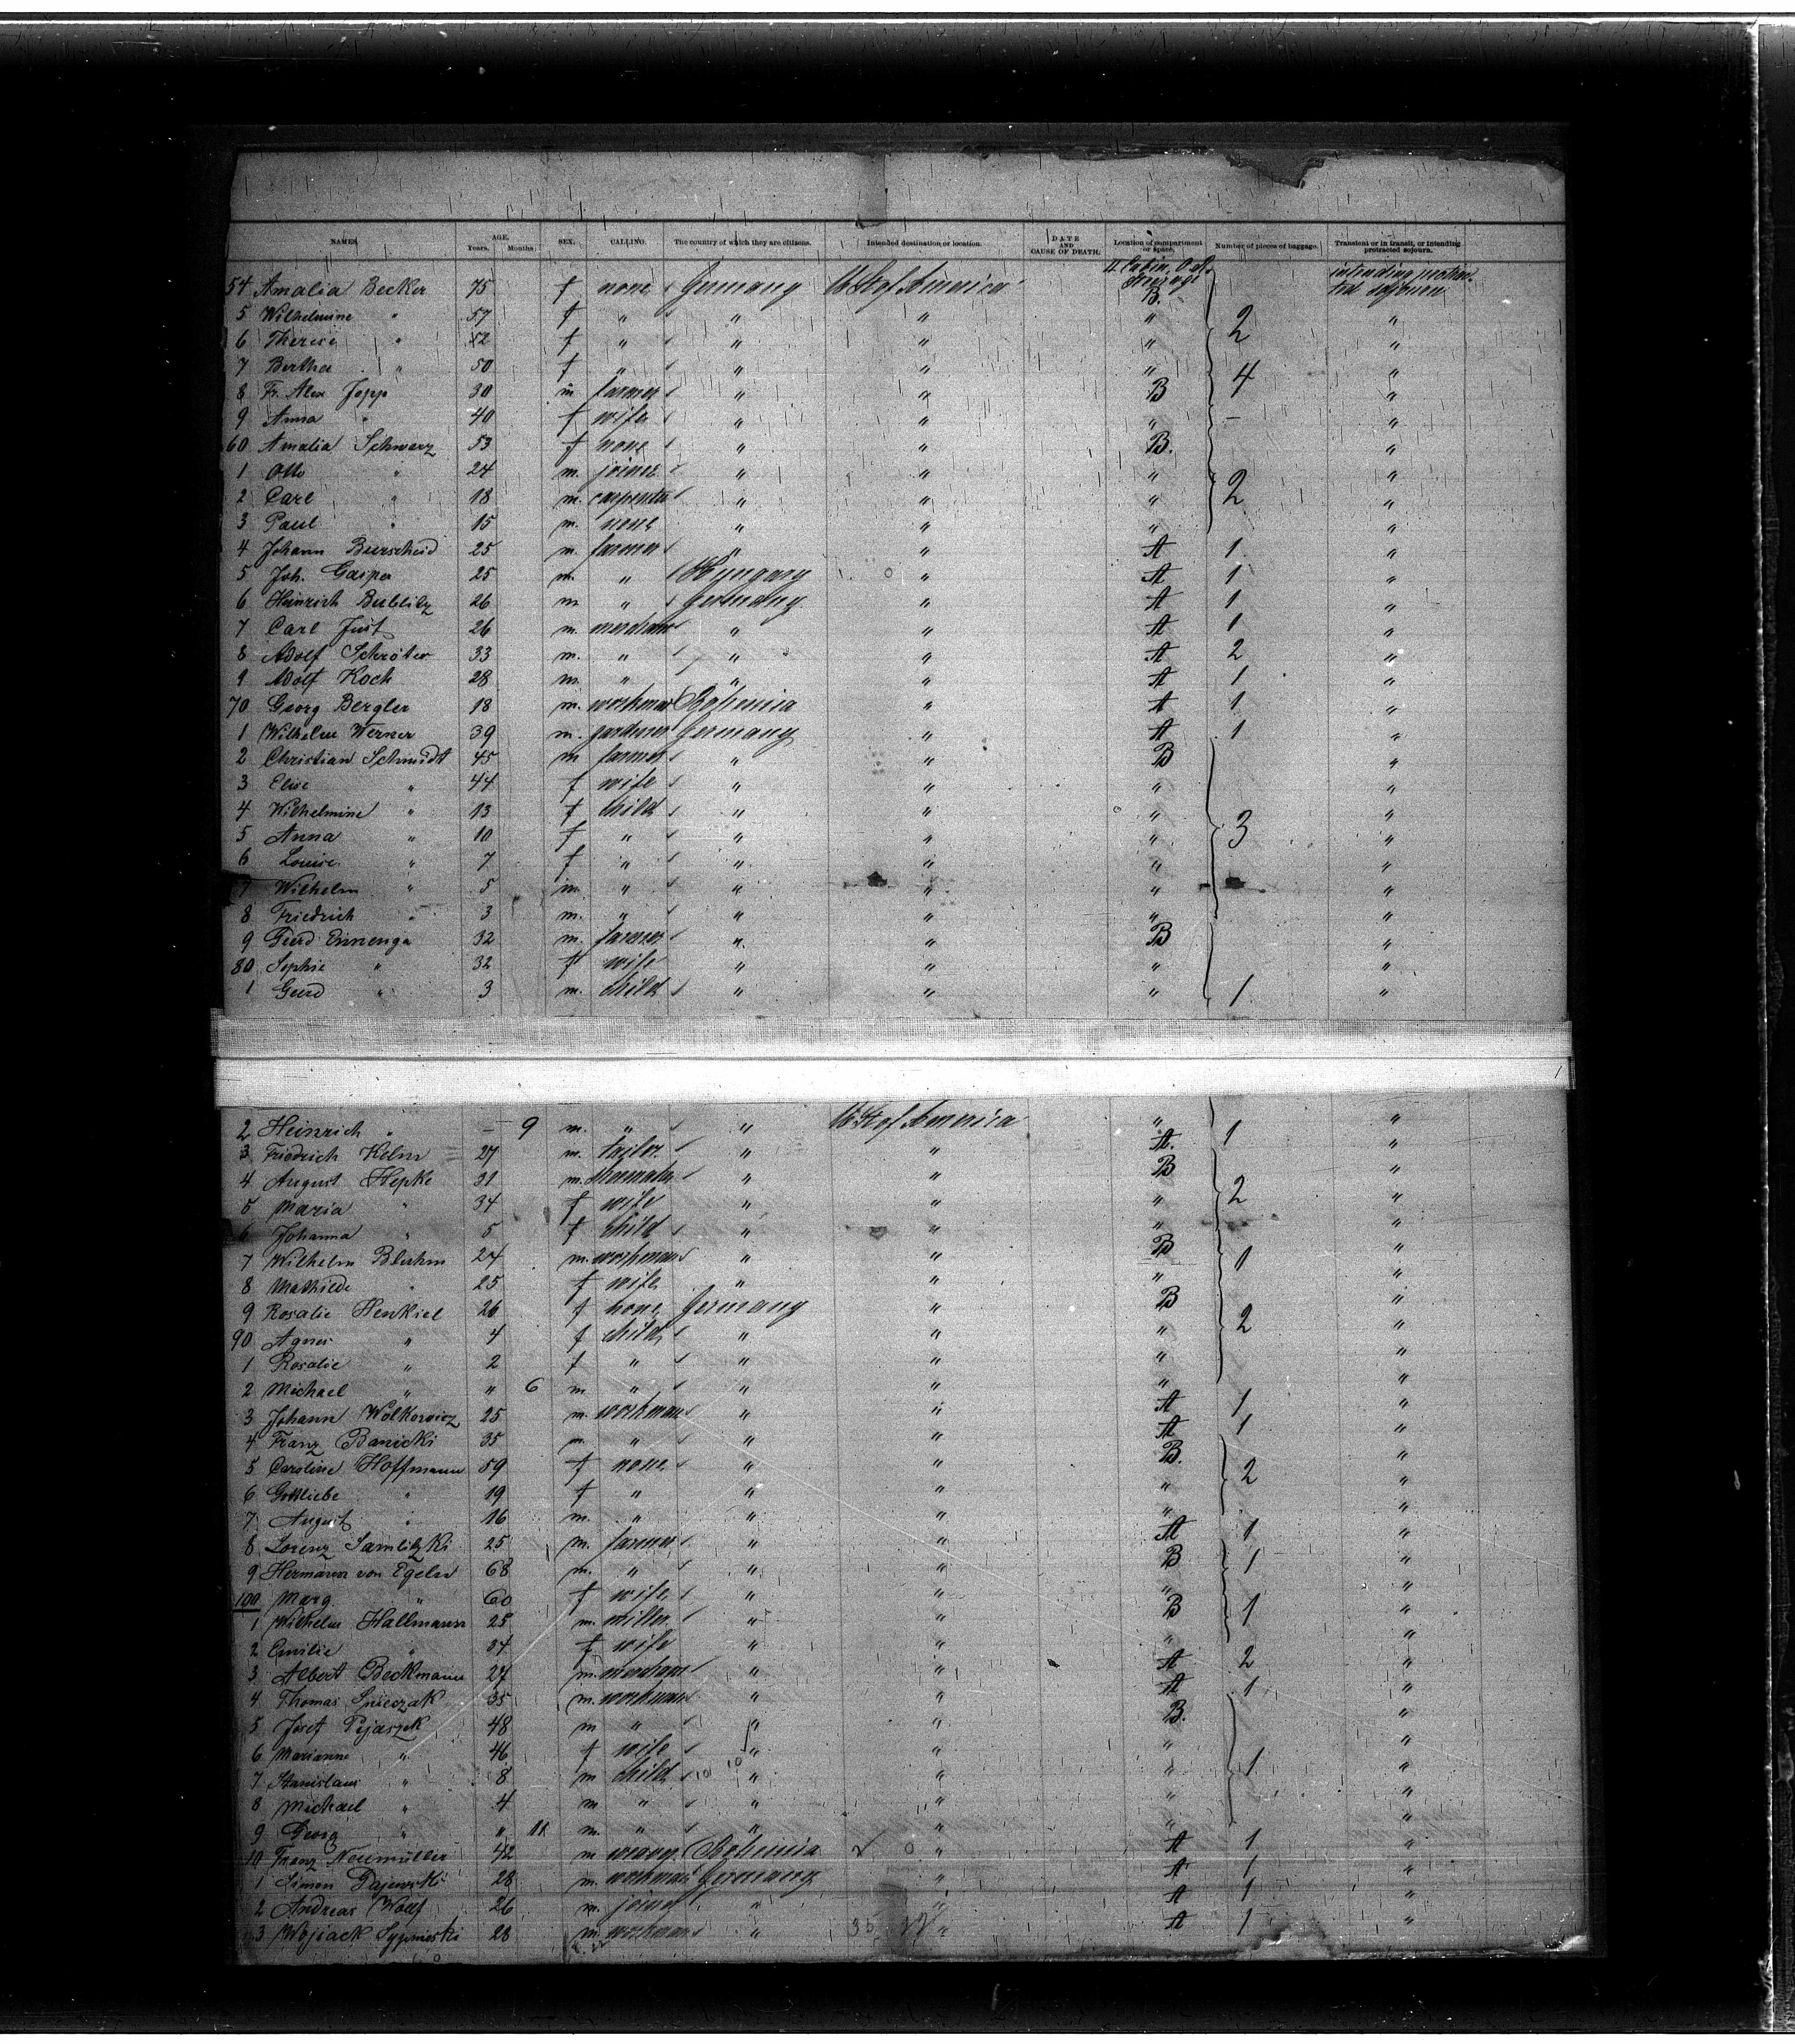 NAMES. AGE. Years. Months. SEX. CALLING. The country of which they are citizens. Intended destination or location. DATE AND CAUSE OF DEATH. Location of compartment or space. Number of pieces of baggage. Transient or in transit, or intending protracted sojourn.
54 Amalia Becker 75 f none Germany U St of America B. intending protracted sojourn
5 Wilhelmine " 57 f " " " " "
6 Therese " 52 f " " " " 2 "
7 Bertha " 50 f " " " " "
8 Fr. Alex Jopp 30 m farmer " " B 4 "
9 Anna " 40 f wife " " " - "
60 Amalia Schwarz 53 f none " " B. "
1 Otto " 24 m. joiner " " " "
2 Carl " 18 m. carpenter " " " 2 "
3 Paul " 15 m. none " " " "
4 Johann Burscheid 25 m. farmer " " A 1 "
5 Joh. Gasper 25 m. " Hungary " A 1 "
6 Heinrich Bublitz 26 m " Germany " A 1 "
7 Carl Just 26 m. merchant " " A 1 "
8 Adolf Schröter 33 m. " " " A 2 "
9 Adolf Koch 28 m. " " " A 1 "
70 Georg Bergler 18 m. workman Bohemia " A 1 "
1 Wilhelm Werner 39 m. gardener Germany " A 1 "
2 Christian Schmidt 45 m farmer " " B "
3 Elise " 44 f wife " " " "
4 Wilhelmine " 13 f child " " " "
5 Anna " 10 f " " " " 3 "
6 Louise " 7 f " " " " "
7 Wilhelm " 5 m. " " " " "
8 Friedrich " 3 m. " " " " "
9 Geerd Ennenga 32 m. farmer " " B "
80 Sophie " 32 f wife " " " "
1 Geerd " 3 m. child " " " 1 "
2 Heinrich " - 9 m. " " U St of America " "
3 Friedrich Kelm 27 m. tailor " " A. 1 "
4 August Hepke 31 m. shoemaker " " B "
5 Maria " 34 f wife " " " 2 "
6 Johanna " 5 f child " " " "
7 Wilhelm Bluhm 24 m. workman " " B 1 "
8 Mathilde " 25 f wife " " " "
9 Rosalie Henkiel 26 f none Germany " B "
90 Agnes " 4 f child " " " 2 "
1 Rosalie " 2 f " " " " "
2 Michael " " 6 m " " " " "
3 Johann Wolkowicz 25 m. workman " " A 1 "
4 Franz Banicki 35 m. " " " A 1 "
5 Caroline Hoffmann 59 f none " " B. "
6 Gottliebe " 19 f " " " " 2 "
7 August " 16 m. " " " " "
8 Lorenz Samlitzki 25 m. farmer " " A 1 "
9 Hermann von Egeln 68 m. " " " B 1 "
100 Marg. " 60 f wife " " " "
1 Wilhelm Hallmann 25 m. miller " " B 1 "
2 Emilie " 34 f wife " " " "
3 Albert Beckmann 27 m. merchant " " A 2 "
4 Thomas Snieczak 35 m. workman " " A 1 "
5 Josef Pijaszek 48 m " " " B. "
6 Marianne " 46 f wife " " " "
7 Stanislaus " 8 m child 10 10 " " " 1 "
8 Michael " 4 m " " " " "
9 Georg " " 11 m. " " " " "
10 Franz Neumüller 42 m Bohemia 0 " A 1 "
1 Simon 28 m. workman Germany " A 1 "
2 Andreas Wolf 26 m. joiner " " A 1 "
3 Wojiack 28 m. workman " " A 1 "